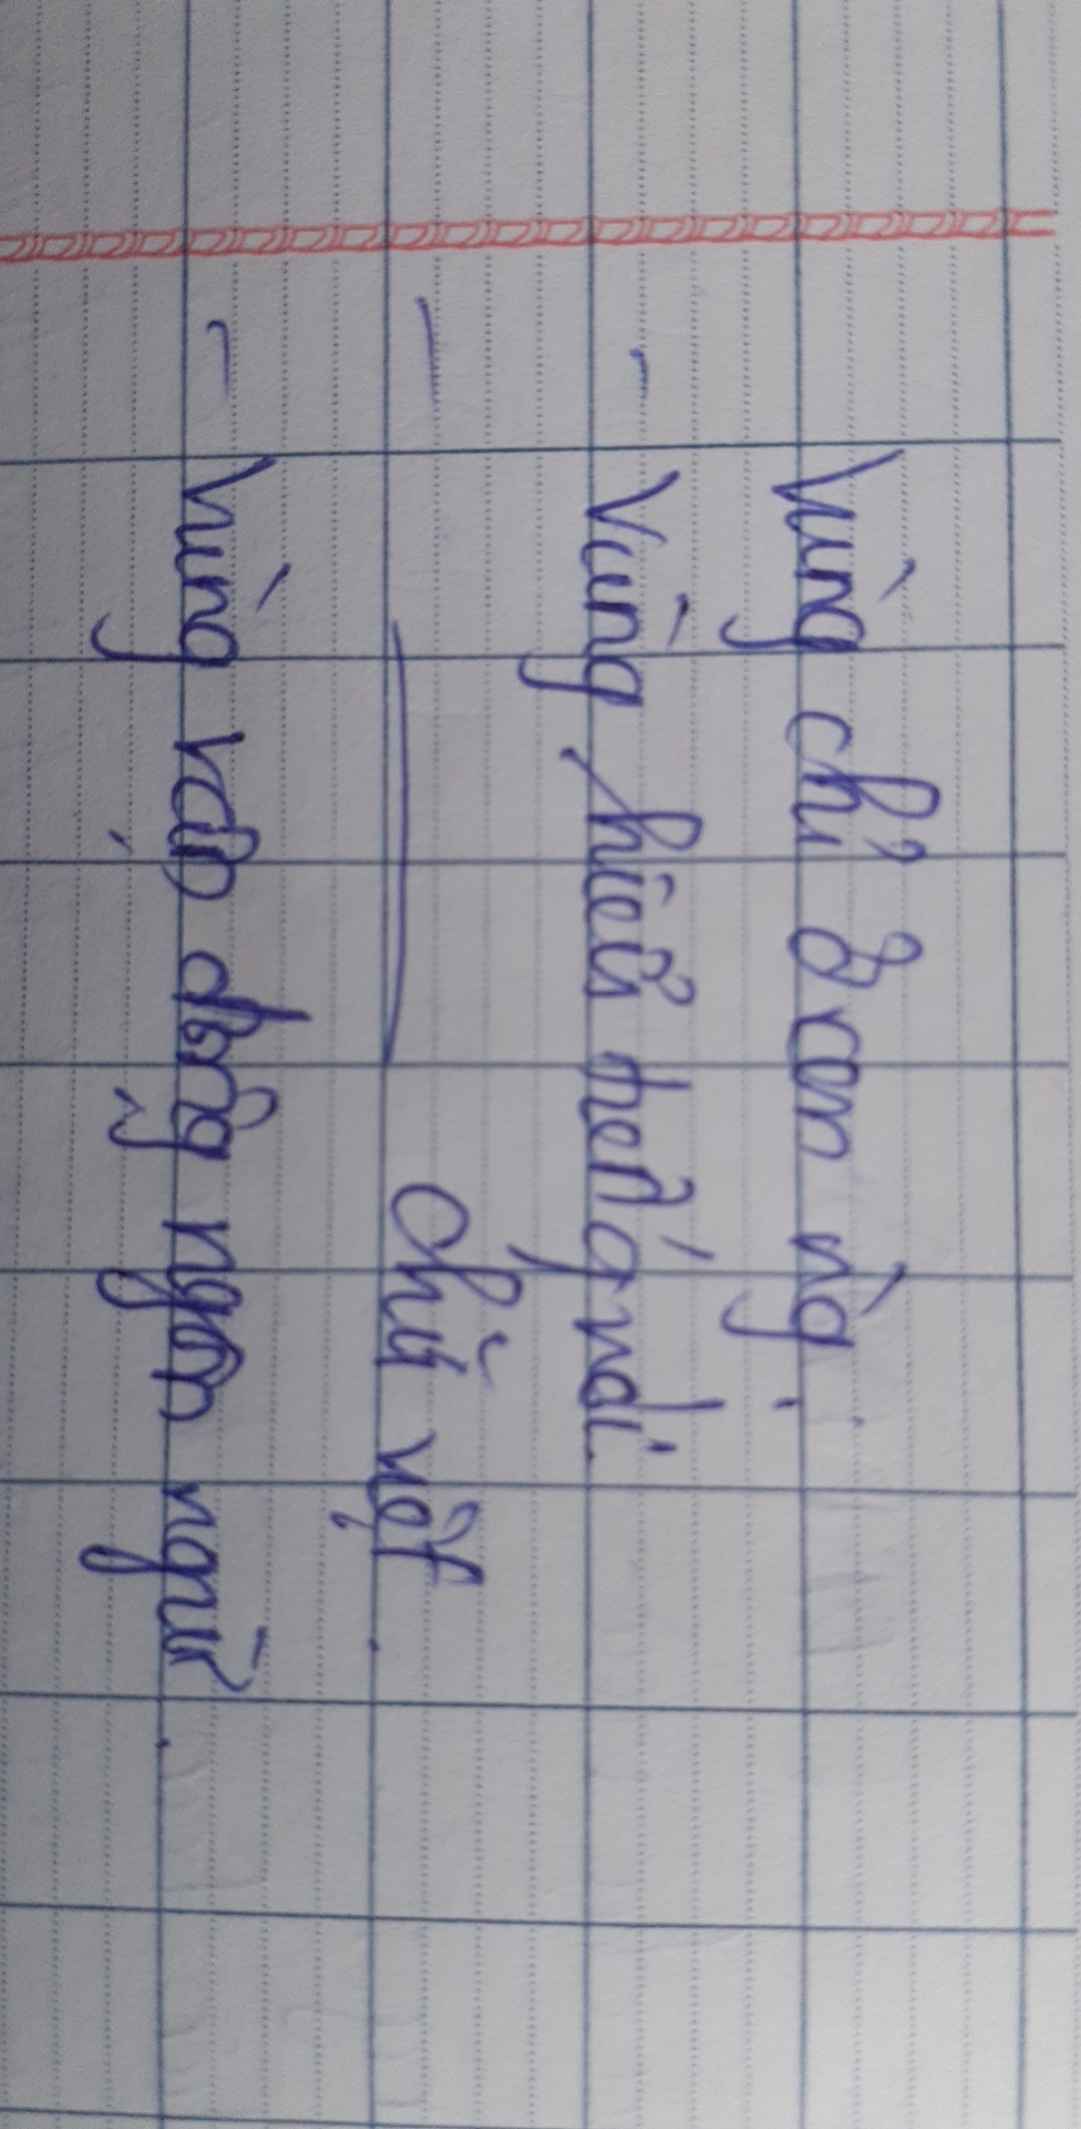 Vùng chỉ ở con ng.
- Vùng hiểu tiếng nói.
- ——— chữ viết.
- Vùng vận động ngôn ngữ.